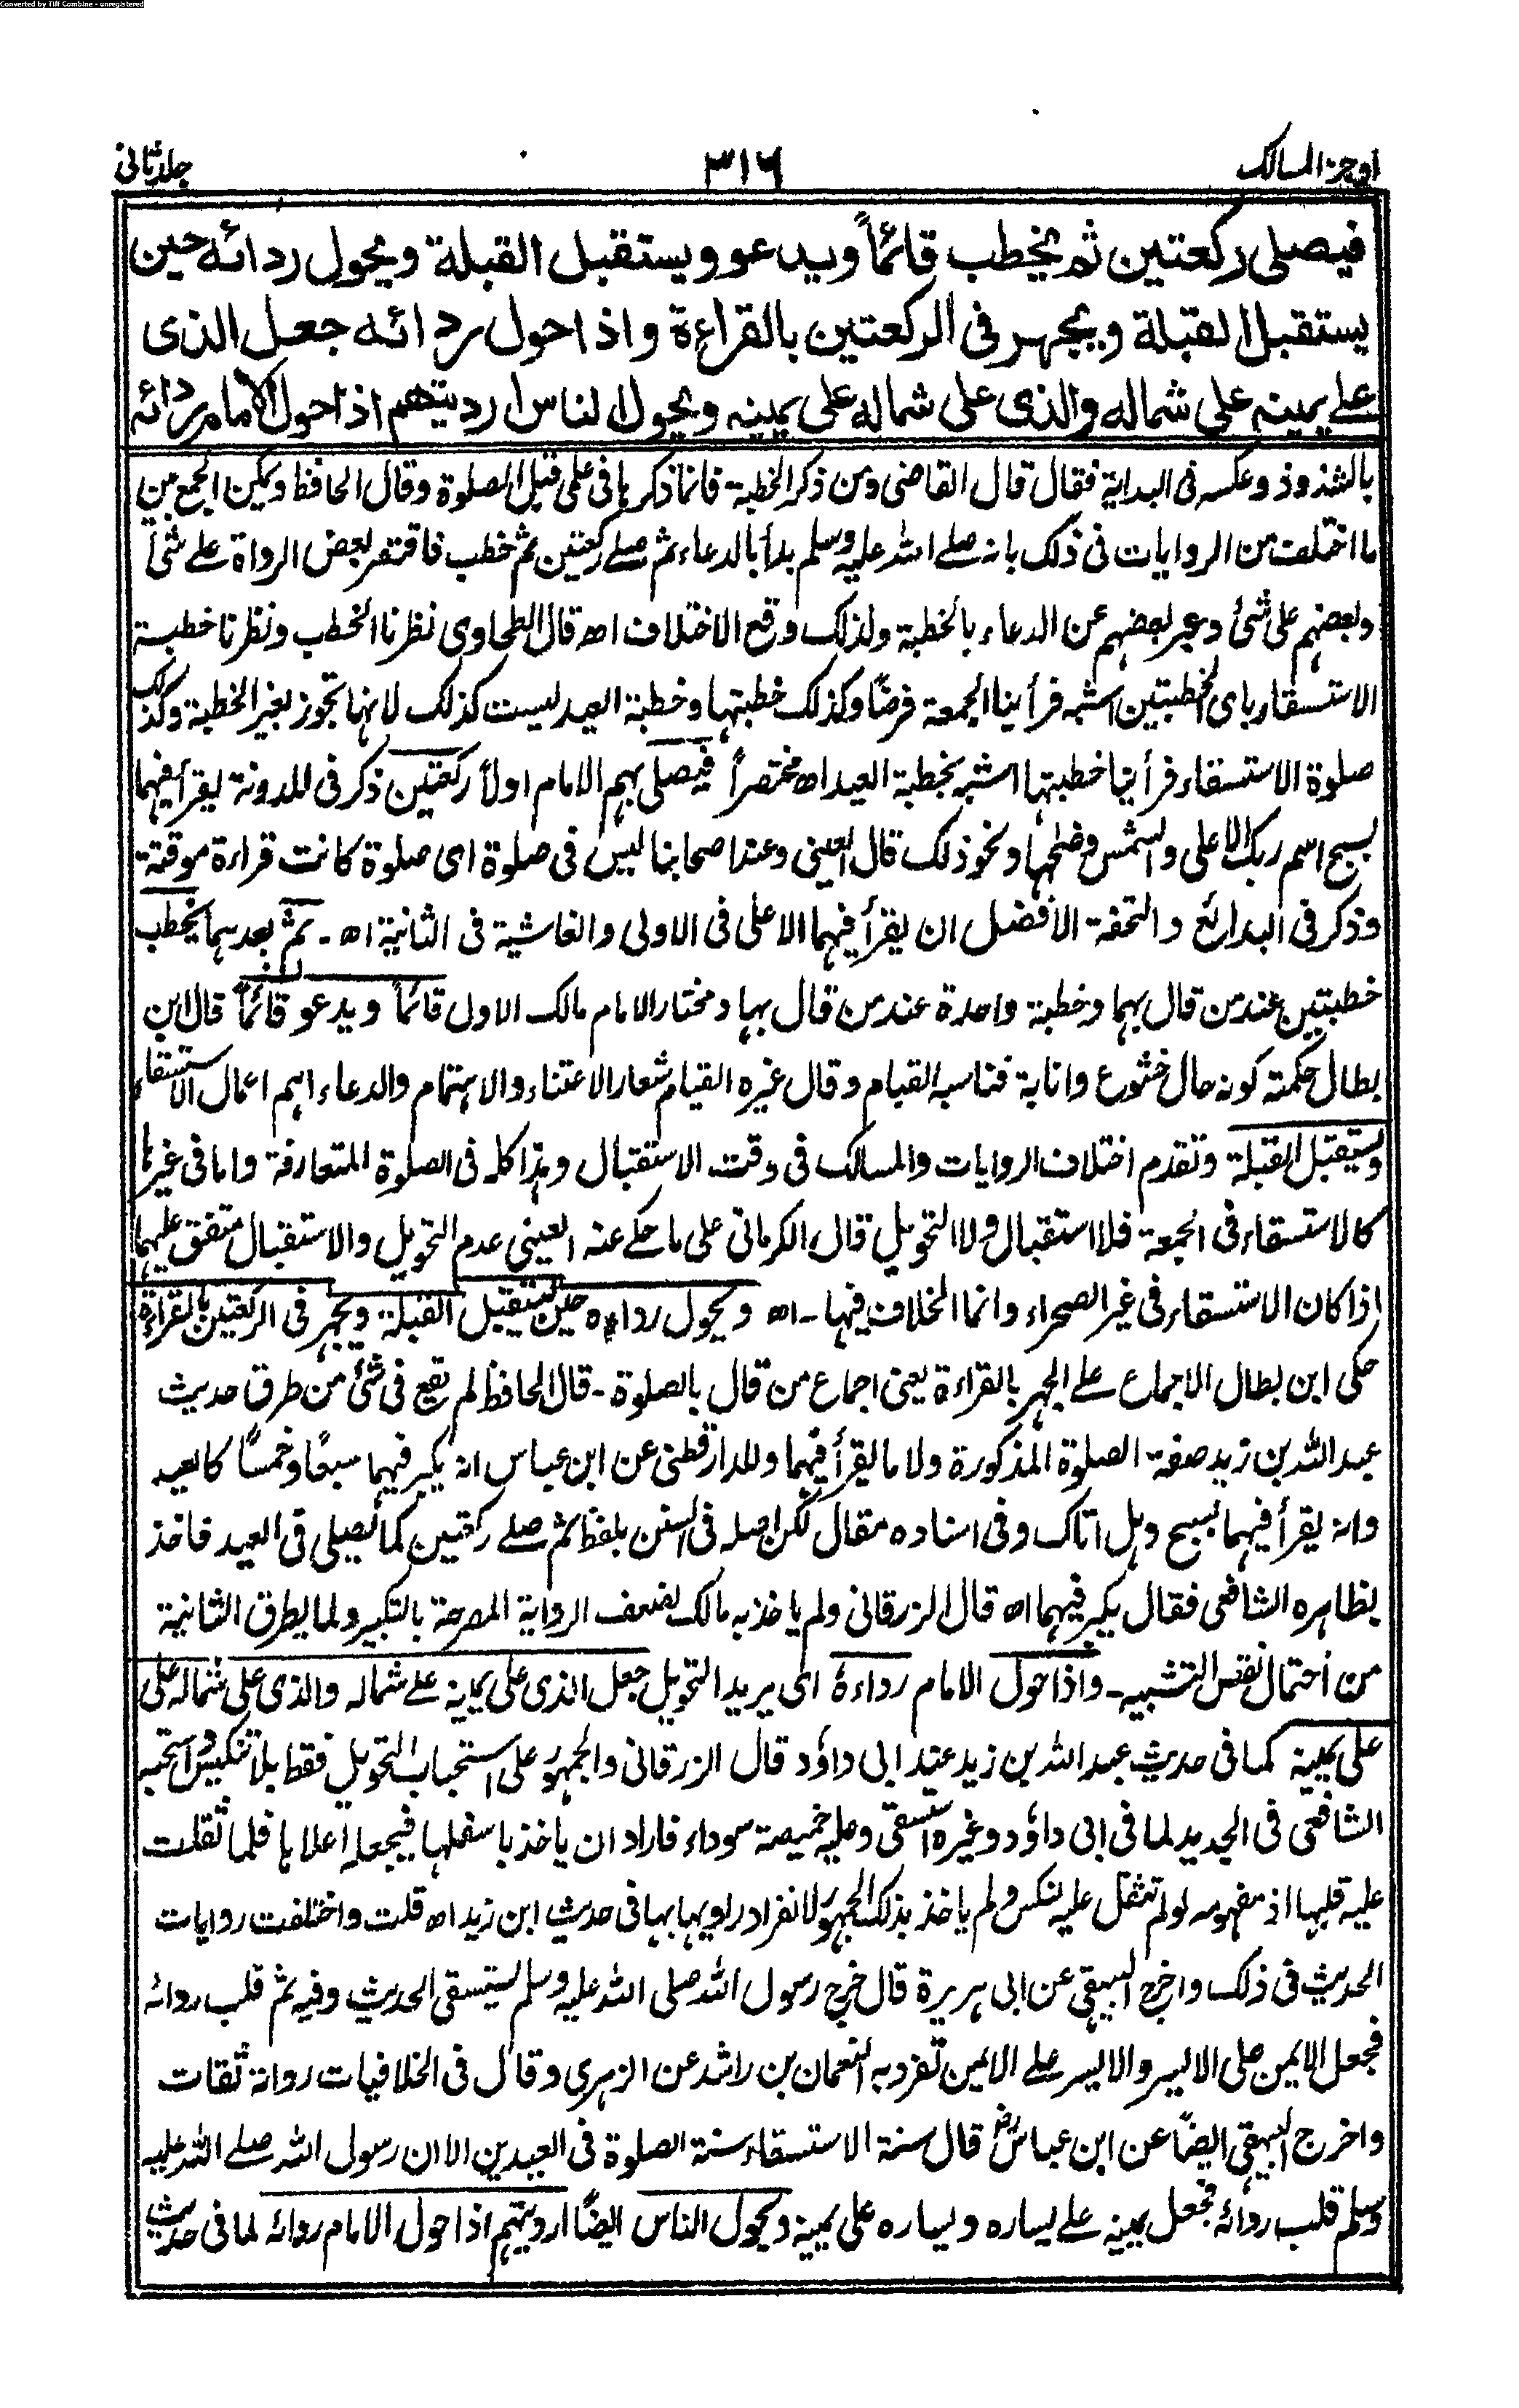 Converted by Tiff Combine - unregistered
اوجز المسالك ٣١٦ جلد ثانى
فيصلى ركعتين ثم يخطب قائماً ويدعو ويستقبل القبلة ويحول ردائه حين
يستقبل القبلة ويجهر فى الركعتين بالقراءة واذا حول ردائه جعل الذى
على يمينه على شماله والذى على شماله على يمينه ويحول الناس ارديتهم اذا حول الامام ردائه
بالشذوذ وعكسه فى البداية فقال قال القاضى ومن ذكر الخطبة فانما ذكرها فى على قبل الصلوة وقال الحافظ ويمكن الجمع بين
ما اختلف من الروايات فى ذلك بانه صلے الله عليه وسلم بدأ بالدعاء ثم صلے ركعتين ثم خطب فاقتصر بعض الرواة على شئ
وبعضهم على شئ وعبر بعضهم عن الدعاء بالخطبة ولذلك وقع الاختلاف اھ قال الطحاوى نظرنا الخطب ونظرنا خطبة
الاستسقاء باى الخطبتين اشبه فرأينا الجمعة فرضاً وكذلك خطبتها وخطبة العيد ليست كذلك لانها تجوز بغير الخطبة وكذلك
صلوة الاستسقاء فرأينا خطبتها اشبه بخطبة العيد اھ مختصراً فيصلى بهم الامام اولاً ركعتين ذكر فى المدونة يقرأ فيهما
بسبح اسم ربك الاعلى والشمس وضحٰها ونحو ذلك قال العينى وعند اصحابنا ليس فى صلوة اى صلوة كانت قراءة موقتة
وذكر فى البدائع والتحفة الافضل ان يقرأ فيهما الاعلى فى الاولى والغاشية فى الثانية اھ ۔ ثم بعدهما يخطب
خطبتين عند من قال بهما وخطبة واحدة عند من قال بها ومختار الامام مالك الاول قائماً ويدعو قائماً قال ابن
بطال حكمته كونه حال خشوع وانابة فناسبه القيام وقال غيره القيام شعار الاعتناء والاهتمام والدعاء اهم اعمال الاستسقاء
ويستقبل القبلة وتقدم اختلاف الروايات والمسالك فى وقت الاستقبال وهذا كله فى الصلوة المتعارفة واما فى غيرها
كالاستسقاء فى الجمعة فلا استقبال ولا التحويل قال الكرمانى على ما حكے عنه العينى عدم التحويل والاستقبال متفق عليهما
اذا كان الاستسقاء فى غير الصحراء وانما الخلاف فيها ۔ اھ ويحول رداءه حين يستقبل القبلة ويجهر فى الركعتين بالقراءة
حكى ابن بطال الاجماع على الجهر بالقراءة يعنى اجماع من قال بالصلوة ۔ قال الحافظ لم يقع فى شئ من طرق حديث
عبد الله بن زيد صفة الصلوة المذكورة ولا ما يقرأ فيهما وللدارقطنى عن ابن عباس انه يكبر فيهما سبعاً وخمساً كالعيد
وانه يقرأ فيهما بسبح وهل اتاك وفى اسناده مقال لكن اصله فى السنن بلفظ ثم صلے ركعتين كما يصلى فى العيد فاخذ
بظاهره الشافعى فقال يكبر فيهما اھ قال الزرقانى ولم ياخذ به مالك لضعف الرواية المصرحة بالتكبير ولما يطرق الثانية
من احتمال نقص التشبيه ۔ واذا حول الامام رداءه اى يريد التحويل جعل الذى على يمينه على شماله والذى على شماله على
على يمينه كما فى حديث عبد الله بن زيد عند ابى داؤد قال الزرقانى والجمهور على استحباب التحويل فقط بلا تنكيس واستحبه
الشافعى فى الجديد لما فى ابى داؤد وغيره استسقى وعليه خميصة سوداء فاراد ان ياخذ باسفلها فيجعله اعلاها فلما ثقلت
عليه قلبها اذ مفهومه لو لم تثقل عليه لنكس ولم ياخذ بذلك الجمهور لانفراد راويها بها فى حديث ابن زيد اھ قلت واختلفت روايات
الحديث فى ذلك واخرج البيهقى عن ابى هريرة قال خرج رسول الله صلى الله عليه وسلم يستسقى الحديث وفيه ثم قلب ردائه
فجعل الايمن على الايسر والايسر على الايمن تفرد به النعمان بن راشد عن الزهرى وقال فى الخلافيات رواته ثقات
واخرج البيهقى ايضاً عن ابن عباس رض قال سنة الاستسقاء سنة الصلوة فى العيدين الا ان رسول الله صلے الله عليه
وسلم قلب ردائه فجعل يمينه على يساره ويساره على يمينه ويحول الناس ايضاً ارديتهم اذا حول الامام ردائه لما فى حديث